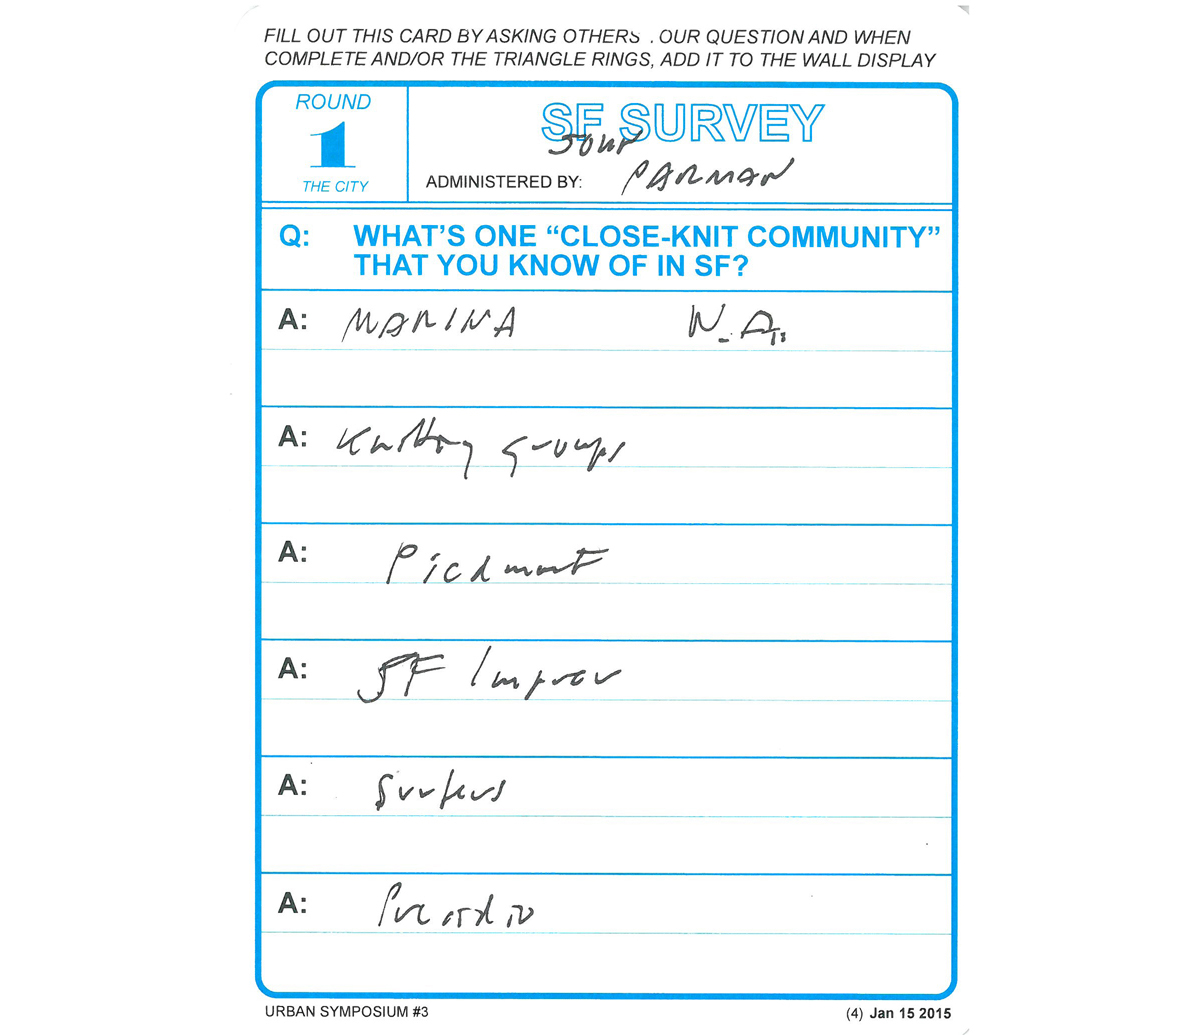 FILL OUT THIS CARD BY ASKING OTHERS . OUR QUESTION AND WHEN
COMPLETE AND/OR THE TRIANGLE RINGS, ADD IT TO THE WALL DISPLAY
ROUND
1
THE CITY
SF SURVEY
ADMINISTERED BY: PARMAN
Q: WHAT'S ONE “CLOSE-KNIT COMMUNITY”
THAT YOU KNOW OF IN SF?
A: MARINA
A: Knitting groups
A: Piedmont
A: SF Improv
A: Surfers
A: Presidio
URBAN SYMPOSIUM #3
(4) Jan 15 2015